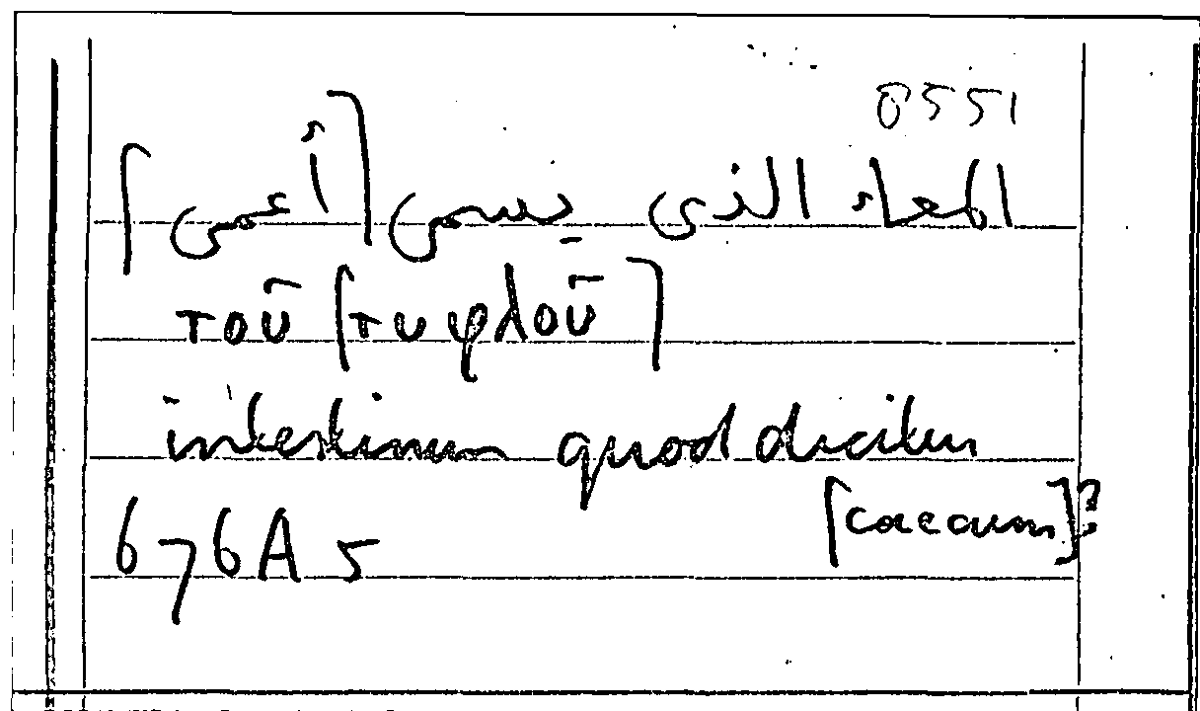 0551
المعاء الذى يسمى [أعمى]
τοῦ [τυφλοῦ]
intestinum quod dicitur
[caecum]?
676A5